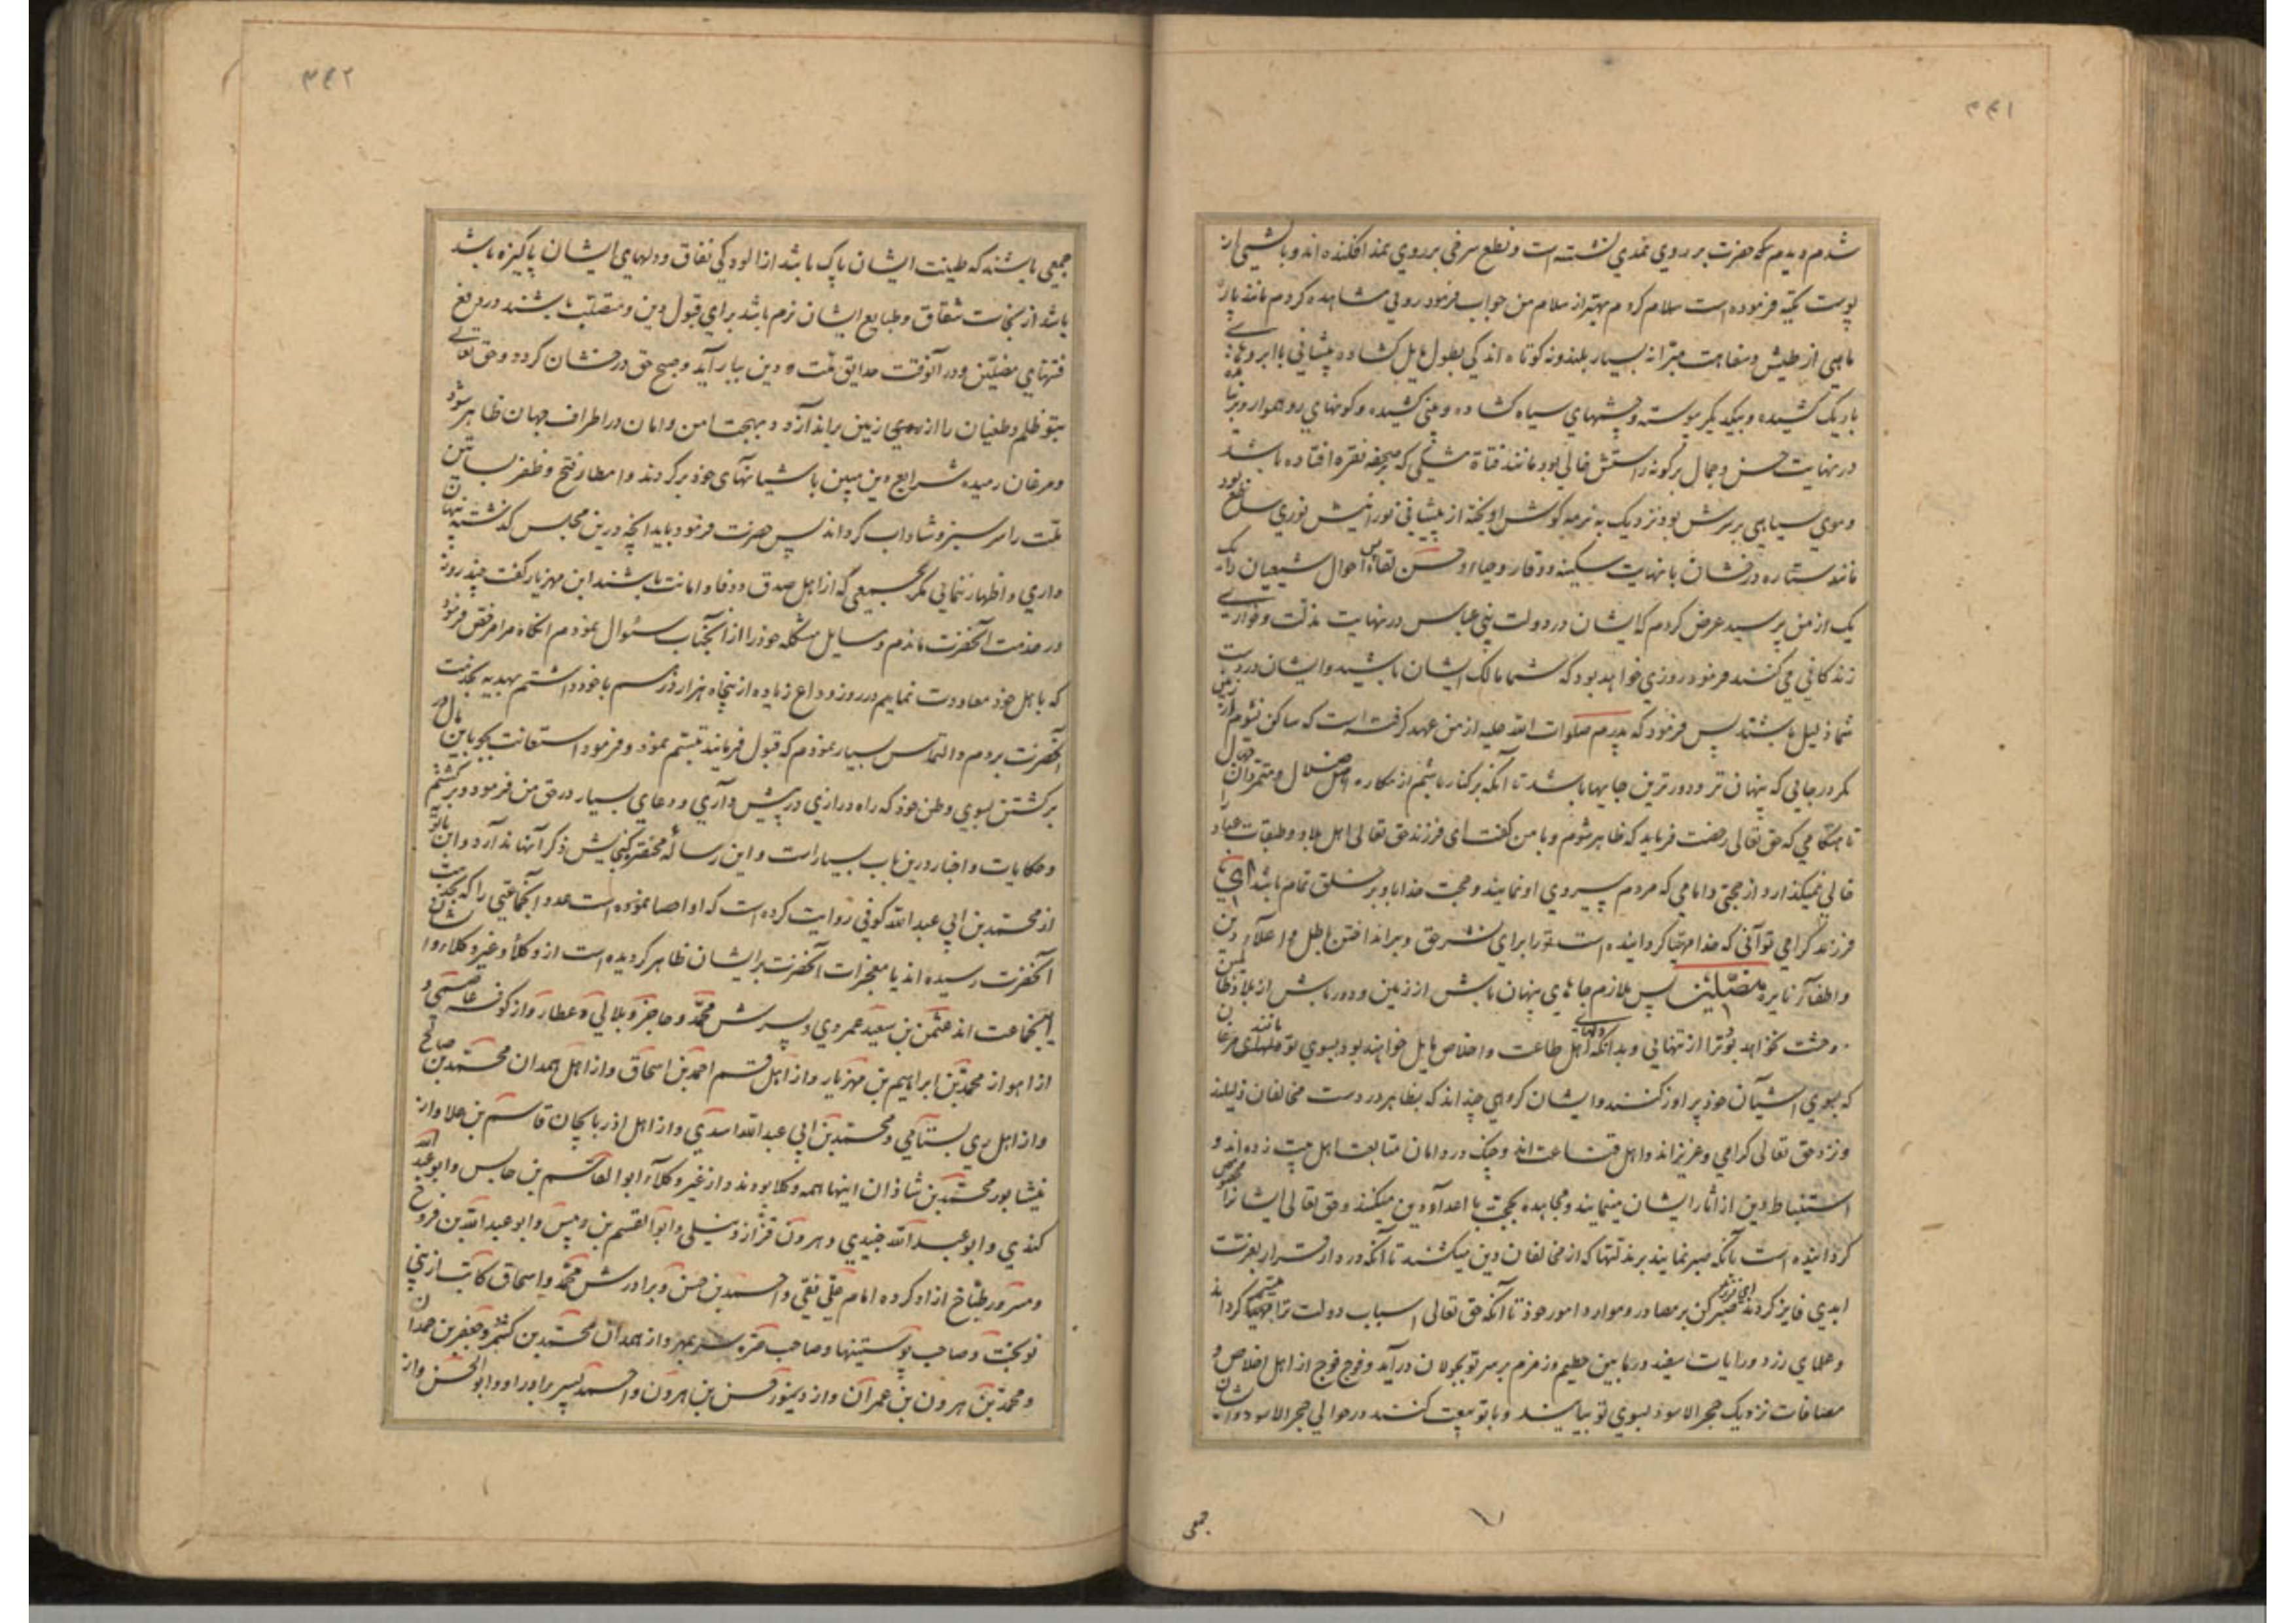 ۴۴۱
شدم و دیدم که حضرت بر روی نمدی نشسته است و نطع سرخی بر روی نمد افکنده اند و بر بالشی از
پوست تکیه فرموده است سلام کردم بهتر از سلام من جواب فرمود روئی مشاهده کردم مانند پاره
ماهی از طیش و سفاهت مبرا نه بسیار بلند و نه کوتاه اندکی بطول مایل گشاده پیشانی با ابروهای
باریک کشیده و بیکدیگر پیوسته و چشمهای سیاه گشاده و بینی کشیده و گونهای رو هموار و برنیامده
در نهایت حسن و جمال بر گونه راستش خالی بود مانند فتاة مشکی که بر صحفه نقره افتاده باشد
و موی سیاهی بر سرش بود نزدیک به نرمه گوش آویخته از پیشانی نورانیش نوری ساطع بود
مانند ستاره درخشان با نهایت سکینه و وقار و حیاء و حسن لقا پس احوال شیعیان را یک
یک از من پرسید عرض کردم که ایشان در دولت بنی عباس در نهایت مذلت و خواری
زندکانی می کنند فرمود روزی خواهد بود که شما مالک ایشان باشید و ایشان در دست
شما ذلیل باشند پس فرمود که پدرم صلوات الله علیه از من عهد گرفته است که ساکن نشوم از زمین
مگر در جائی که پنهان تر و دورترین جایها باشد تا آنکه برکنار باشم از مکاره اهل ضلال و متمردان جهال
تا هنگامی که حق تعالی رخصت فرماید که ظاهر شوم و با من گفت ای فرزند حق تعالی اهل بلاد و طبقات عباد را
خالی نمیگذارد از حجتی و امامی که مردم پیروی او نمایند و حجت خدا با و بر خلق تمام باشد ای
فرزند گرامی تو آنی که خدا مهیا گردانیده است ترا برای نشر حق و برانداختن باطل و اعلاء دین
و اطفاء نایره مضلین پس ملازم جاهای پنهان باش از زمین و دور باش از بلاد ظالمین
و وحشت نخواهد بود ترا از تنهائی و بدانکه دلهای اهل طاعت و اخلاص مایل خواهند بود بسوی تو مانند مرغان
که بسوی آشیان خود پرواز کنند و ایشان گروهی چند اند که بظاهر در دست مخالفان ذلیلند
و نزد حق تعالی گرامی و عزیزاند و اهل قناعت اند و چنک در دامان متابعت اهل بیت زده اند و
استنباط دین از آثار ایشان مینمایند و مجاهده بحجت با اعداء دین میکنند و حق تعالی ایشانرا مخصوص
گردانیده است بآنکه صبر نمایند بر مذلتها که از مخالفان دین میکشند تا آنکه در دار قرار بعزت
ابدی فایز گردند ای فرزند صبر کن بر مصادر و موارد امور خود تا آنکه حق تعالی اسباب دولت ترا میسر گرداند
و علمهای زرد و رایات سفید در مابین حطیم و زمزم بر سر تو بجولان درآید و فوج فوج از اهل اخلاص و
مصافات نزدیک حجرالاسود بسوی تو بیایند و با تو بیعت کنند در حوالی حجرالاسود و ایشان
جمعی
۴۴۲
جمعی باشند که طینت ایشان پاک باشد از آلودگی نفاق و دلهای ایشان پاکیزه باشد
باشد از نجاست شقاق و طبایع ایشان نرم باشد برای قبول دین و متصلب باشند در دفع
فتنهای مضلین و در آنوقت حدایق ملت و دین ببار آید و صبح حق درخشان گردد و حق تعالی
بتو ظلم و طغیان را از روی زمین براندازد و بهجت امن و امان در اطراف جهان ظاهر شود
و مرغان رمیده شرایع دین مبین باشیانهای خود برگردند و امطار فتح و ظفر بساتین
ملت را سرسبز و شاداب گرداند پس حضرت فرمود باید آنچه درین مجلس گذشت پنهان
داری و اظهار ننمائی مگر بجمعی که از اهل صدق و وفا و امانت باشند ابن مهزیار گفت چند روز
در خدمت آنحضرت ماندم و مسایل مشکله خود را از آنجناب سئوال نمودم آنگاه مرا مرخص فرمود
که باهل خود معاودت نمایم در روز وداع زیاده از پنجاه هزار درهم با خود داشتم بهدیه بخدمت
آنحضرت بردم و التماس بسیار نمودم که قبول فرمایند تبسم نمود و فرمود استعانت بجو باین مال در
برگشتن بسوی وطن خود که راه درازی در پیش داری و دعای بسیار در حق من فرمود و برگشتم
و حکایات و اخبار درین باب بسیار است و این رساله مختصر گنجایش ذکر آنها ندارد و ابن بابویه
از محمد بن ابی عبدالله کوفی روایت کرده است که او احصا نموده است عدد آنجماعتی را که بخدمت
آنحضرت رسیده اند یا معجزات آنحضرت بر ایشان ظاهر گردیده است از وکلا و غیر وکلاء و ایشان
اینجماعت اند عثمن بن سعید عمروی و پسرش محمد و حاجز و بلالی و عطار و از کوفه عاصمی و
از اهواز محمد بن ابراهیم بن مهزیار و از اهل قم احمد بن اسحاق و از اهل همدان محمد بن صالح
و از اهل ری بسامی و محمد بن ابی عبدالله اسدی و از اهل اذربایجان قاسم بن علا و از
نیشابور محمد بن شاذان اینها همه وکلا بودند و از غیر وکلاء ابوالقاسم بن حابس و ابو عبدالله
کندی و ابو عبدالله جنیدی و هرون قزاز و نیلی و ابوالقسم بن دبیس و ابو عبدالله بن فروخ
و مسرور طباخ آزاد کرده امام علی نقی و احمد بن حسن و برادرش محمد و اسحاق کاتب از بنی
نوبخت و صاحب پوستینها و صاحب صره سر بمهر و از همدان محمد بن کشمر و جعفر بن حمدان
و محمد بن هرون بن عمران و از دینور حسن بن هرون و احمد پسر برادر او و ابوالحسن و از